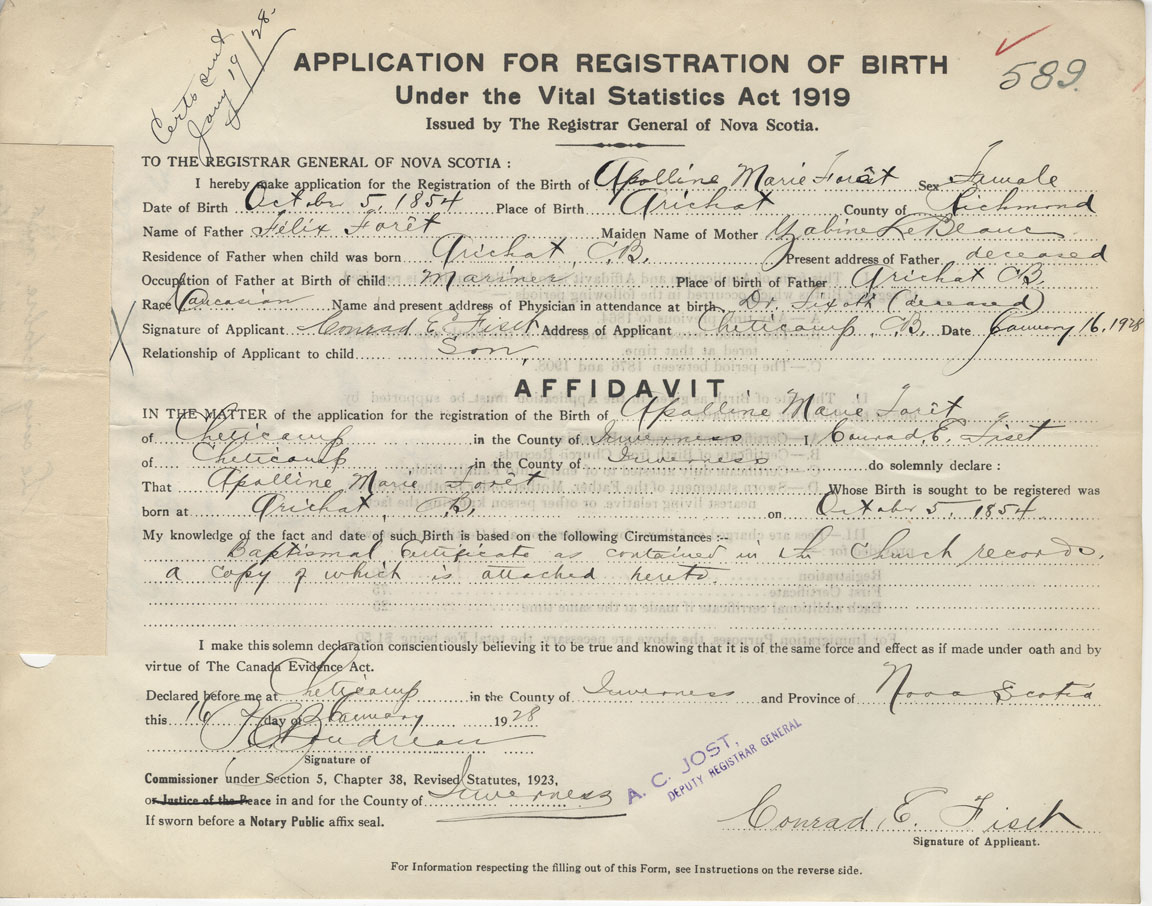 Certs sent
Jany 19/28.
589.
APPLICATION FOR REGISTRATION OF BIRTH
Under the Vital Statistics Act 1919
Issued by The Registrar General of Nova Scotia.
TO THE REGISTRAR GENERAL OF NOVA SCOTIA :
I hereby make application for the Registration of the Birth of Apolline Marie Forêt Sex Female
Date of Birth October 5, 1854 Place of Birth Arichat County of Richmond
Name of Father Félix Forêt Maiden Name of Mother Sabine LeBlanc
Residence of Father when child was born Arichat, C.B. Present address of Father deceased
Occupation of Father at Birth of child Mariner Place of birth of Father Arichat C.B.
Race Caucasian Name and present address of Physician in attendance at birth Dr. (deceased)
X Signature of Applicant Conrad E. Fiset Address of Applicant Cheticamp, C.B. Date January 16, 1928
Relationship of Applicant to child Son,
AFFIDAVIT
IN THE MATTER of the application for the registration of the Birth of Apolline Marie Forêt
of Cheticamp in the County of Inverness I, Conrad E. Fiset
of Cheticamp in the County of Inverness do solemnly declare :
That Apolline Marie Forêt Whose Birth is sought to be registered was
born at Arichat, C.B. on October 5, 1854
My knowledge of the fact and date of such Birth is based on the following Circumstances :--
Baptismal Certificate as contained in the Church records,
a copy of which is attached hereto.
I make this solemn declaration conscientiously believing it to be true and knowing that it is of the same force and effect as if made under oath and by
virtue of The Canada Evidence Act.
Declared before me at Cheticamp in the County of Inverness and Province of Nova Scotia
this 16 day of January 1928
Boudreau
Signature of
Commissioner under Section 5, Chapter 38, Revised Statutes, 1923,
or Justice of the Peace in and for the County of Inverness
If sworn before a Notary Public affix seal.
A. C. JOST,
DEPUTY REGISTRAR GENERAL
Conrad E. Fiset
Signature of Applicant.
For Information respecting the filling out of this Form, see Instructions on the reverse side.